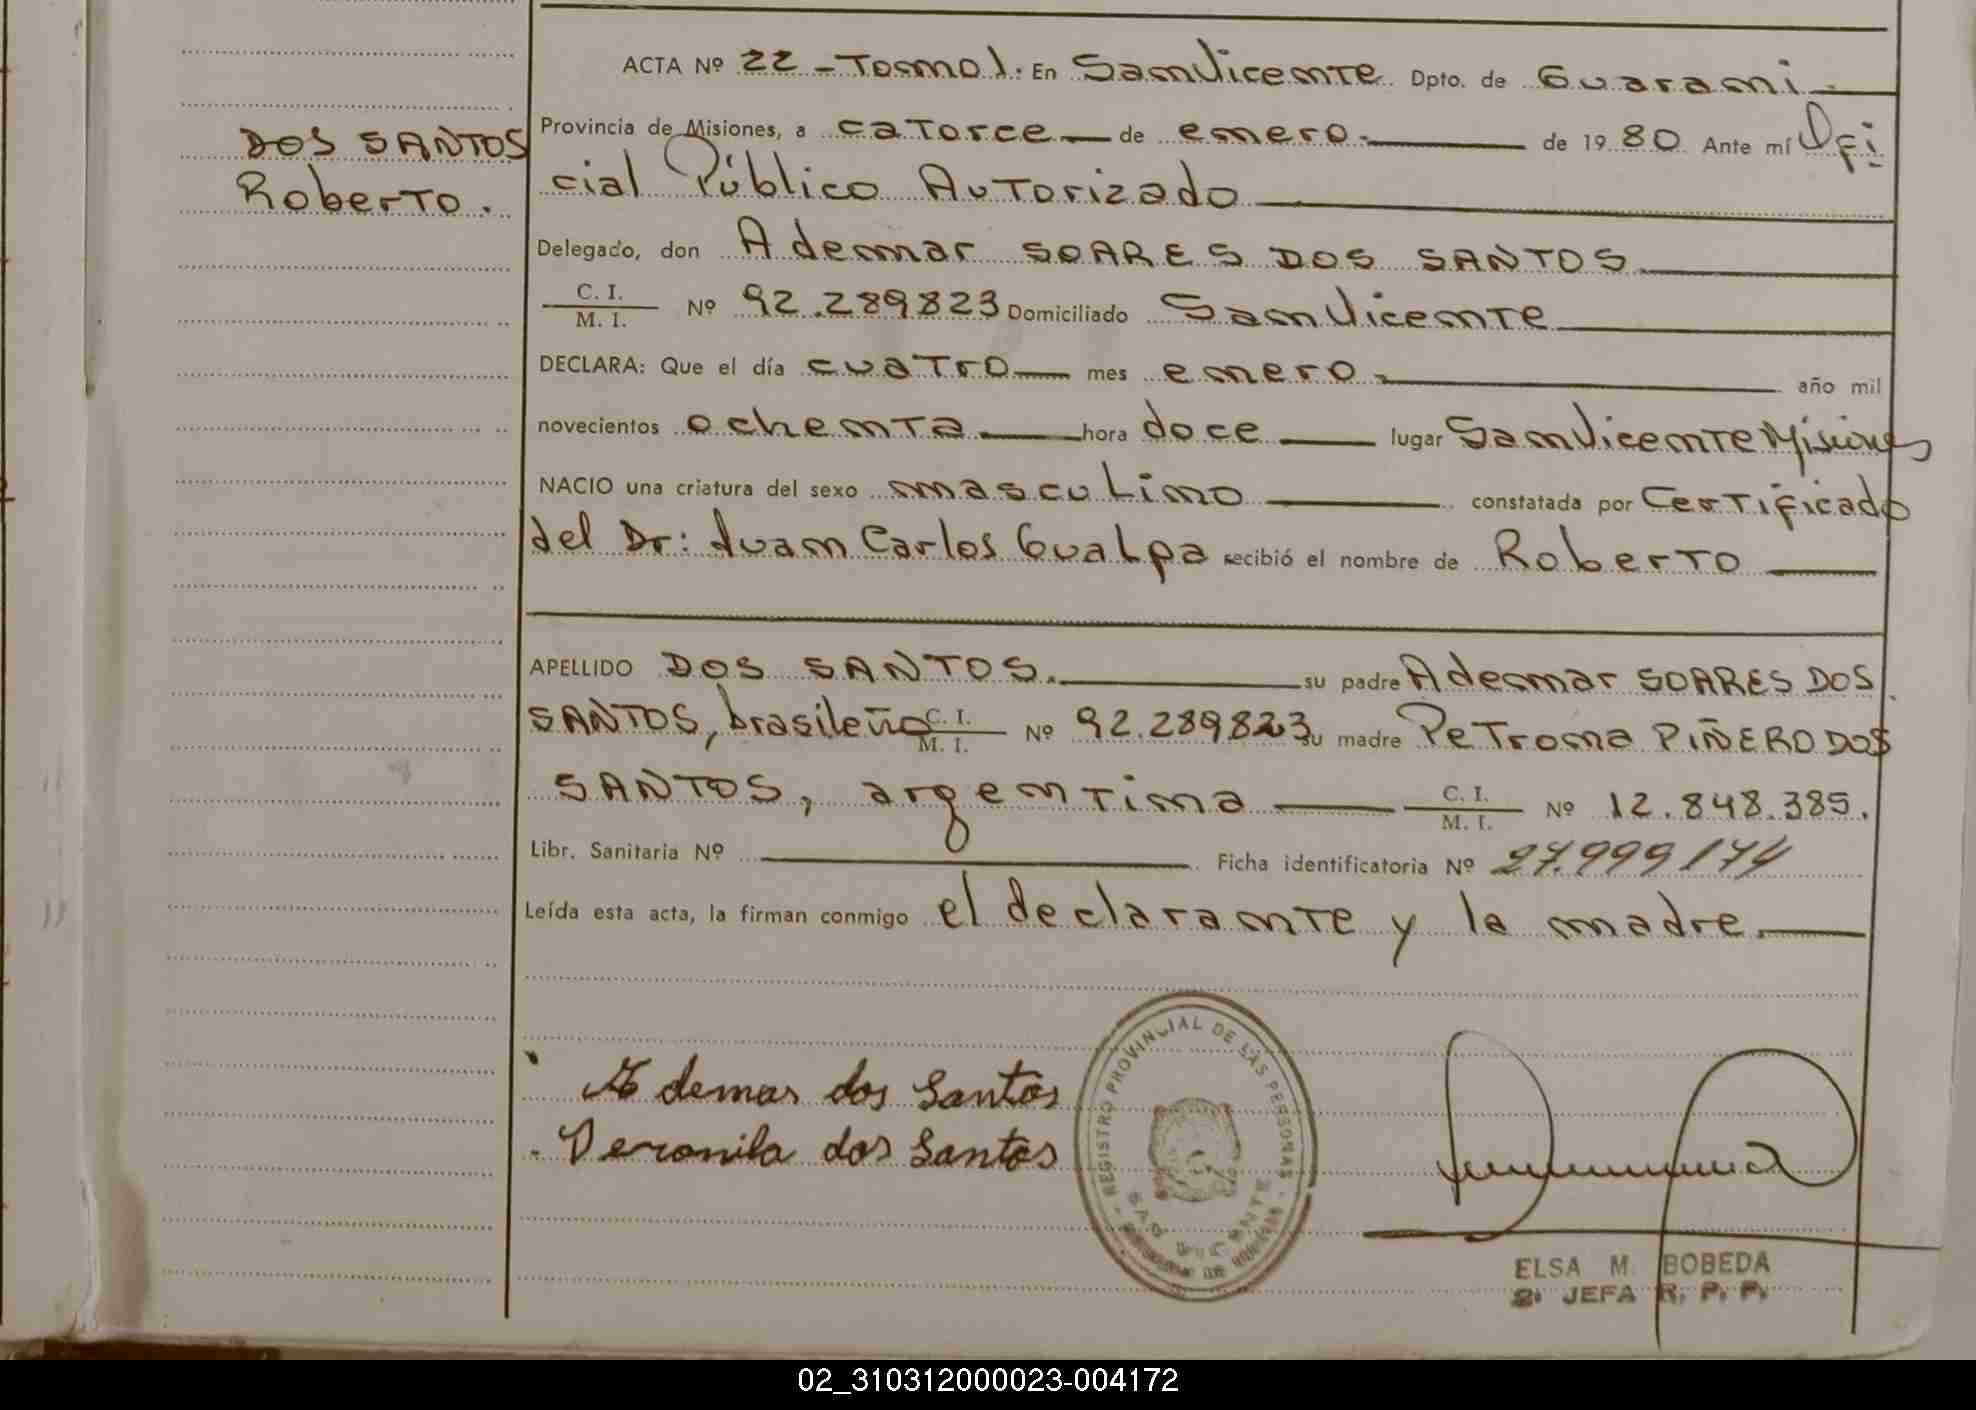 ACTA Nº 22 - Tomo 1. En San Vicente Dpto. de Guarani
DOS SANTOS
Roberto.
Provincia de Misiones, a catorce de enero de 1980 Ante mí Ofi
cial Público Autorizado
Delegado, don Ademar SOARES DOS SANTOS
C. I.
M. I.
Nº 92.289823 Domiciliado San Vicente
DECLARA: Que el día cuatro mes enero año mil
novecientos ochenta hora doce lugar San Vicente Misiones
NACIO una criatura del sexo masculino constatada por Certificado
del Dr: Juan Carlos Gualpa recibió el nombre de Roberto
APELLIDO DOS SANTOS. su padre Ademar SOARES DOS
SANTOS, brasileño C. I. M. I. Nº 92.289823 su madre Petrona PIÑERO DOS
SANTOS, argentina C. I. M. I. Nº 12.848.385.
Libr. Sanitaria Nº Ficha identificatoria Nº 27.999174
Leída esta acta, la firman conmigo el declarante y la madre.
Ademar dos Santos
dos Santos
REGISTRO PROVINCIAL DE LAS PERSONAS
SAN VICENTE
ELSA M. BOBEDA
2º JEFA R. P. P.
02_310312000023-004172